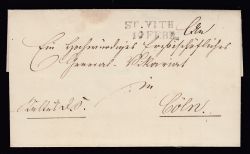 ST. VITH.
19 FEBR.
Ein Hochwürdiges Erzbischöfliches
General-Vikariat
in
Cöln.